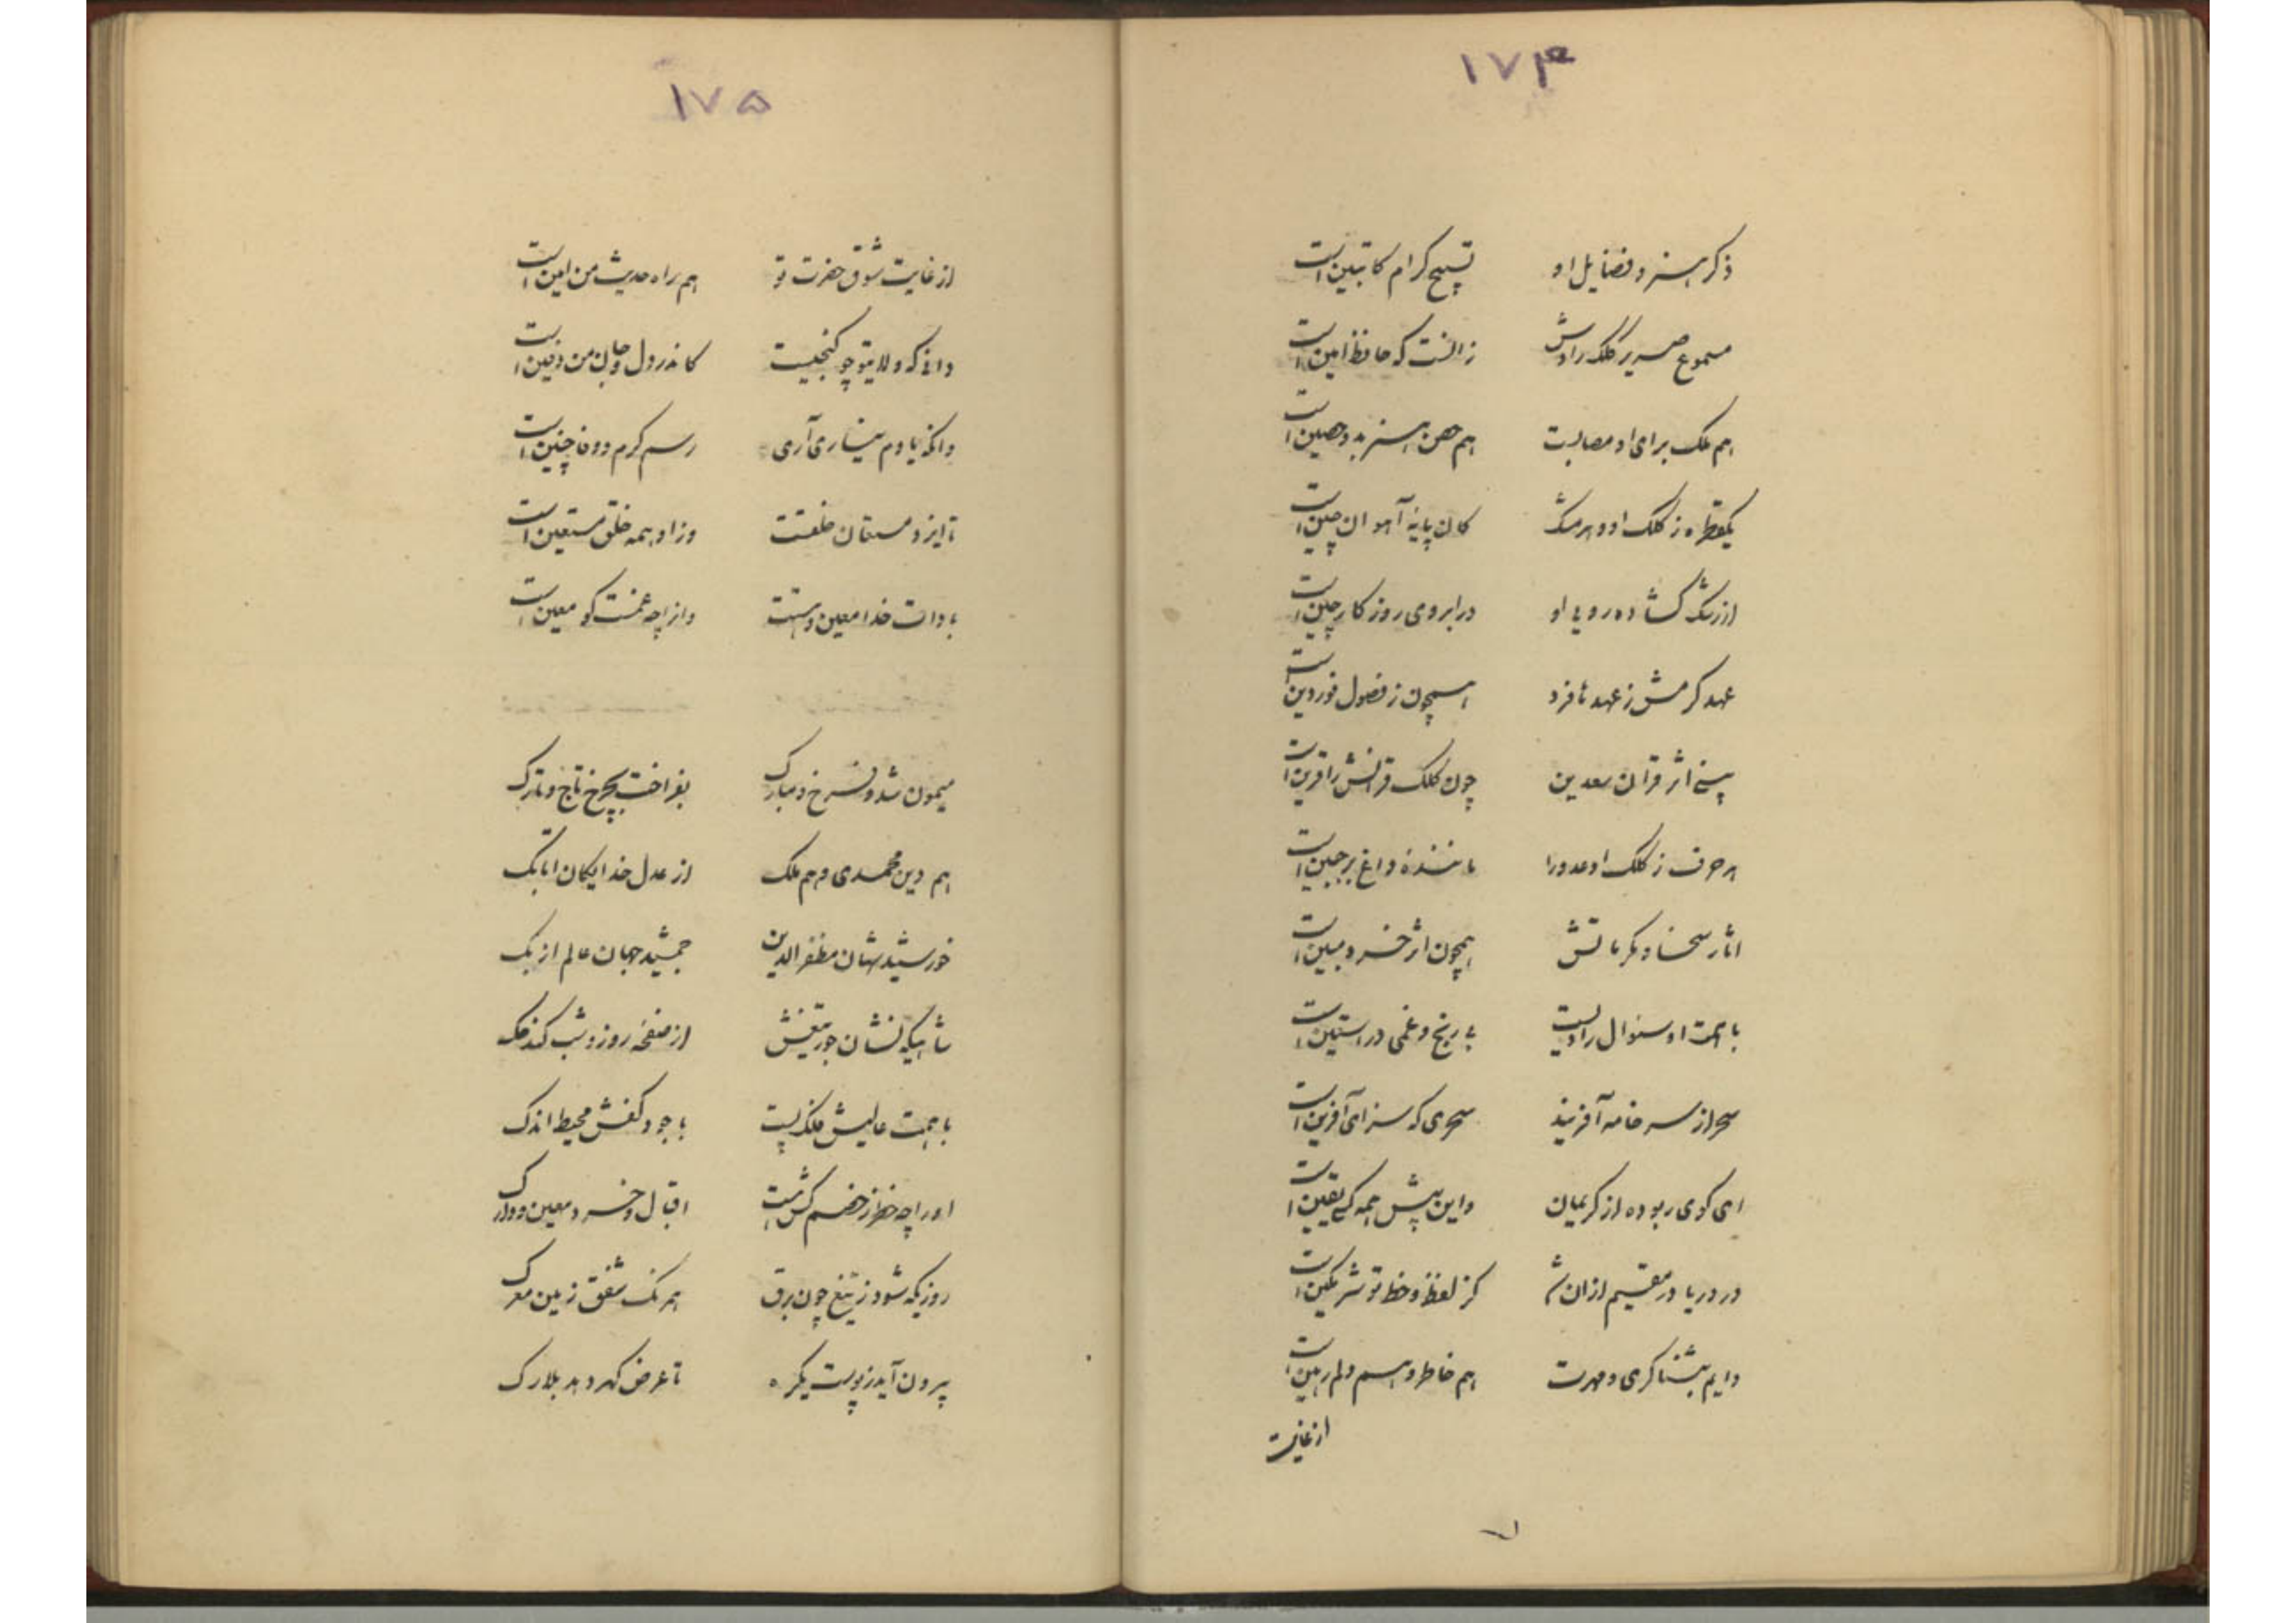 ۱۷۴
ذکر هنر و فضایل او تسبیح کرام کاتبین است
مسموع صریر کلک رادش زانست که حافظ امین است
هم ملک برای او مصالبت هم حصن هنر بدو حصین است
یکقطره ز کلک او و هر مشک کان پایهٔ آهوان چین است
از رشک گشاده رویی او در ابروی روزگار چین است
عهد کرمش ز عهدها فرد همچون ز فصول فوردین است
بینی اثر قران سعدین چون کلک قرانش را قرین است
هر حرف ز کلک او عدو را مانندهٔ داغ بر جبین است
اثار سخا و مکرماتش همچون اثر خرد مبین است
با همت او سئوال را دست بی رنج و غمی در استین است
سحر از سر خامه آفریند سحری که سزای آفرین است
ای گوی ربوده از کریمان واین پیش همه کس یقین است
در دریا در مقیم ازان شد کز لفظ و خط تو شرمگین است
دایم بثناگری و مهرت هم خاطر و هم دلم رهین است
از غایت
۱۷۵
از غایت شوق حضرت تو هم راه حدیث من امین است
دانی که ولای تو چو گنجیست کاندر دل و جان من دفین است
وانکه یادم نیاری آری رسم کرم و وفا چنین است
تا ایزد مستعان خلقت وز او همه خلق مستعین است
بادات خدا معین و هست واز چه غمست کو معین است
میمون شد و فرخ و مبارک بفراخت بچرخ تاج و تارک
هم دین محمدی و هم ملک از عدل خدایگان اتابک
خورشید شهان مظفر الدین جمشید جهان عالم ازبک
شاهیکه نشان جور تیغش از صفحه روز و شب کند حک
با همت عالیش فلک پست با جود کفش محیط اندک
او را چه خطر ز خضم کش هست اقبال و خرد معین و دارک
روزیکه شود ز تیغ چون برق همرنگ شفق زمین معرک
بیرون آید ز پوست یکره تا عرض گهر دهد بلارک